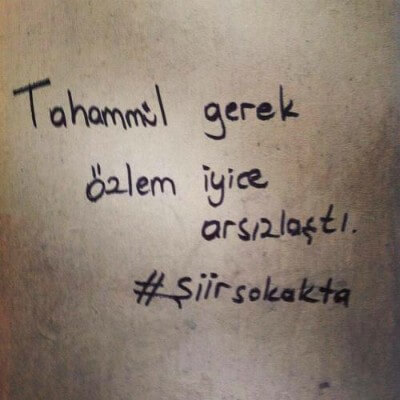 Tahammül gerek
özlem iyice
arsızlaştı.
#şiirsokakta